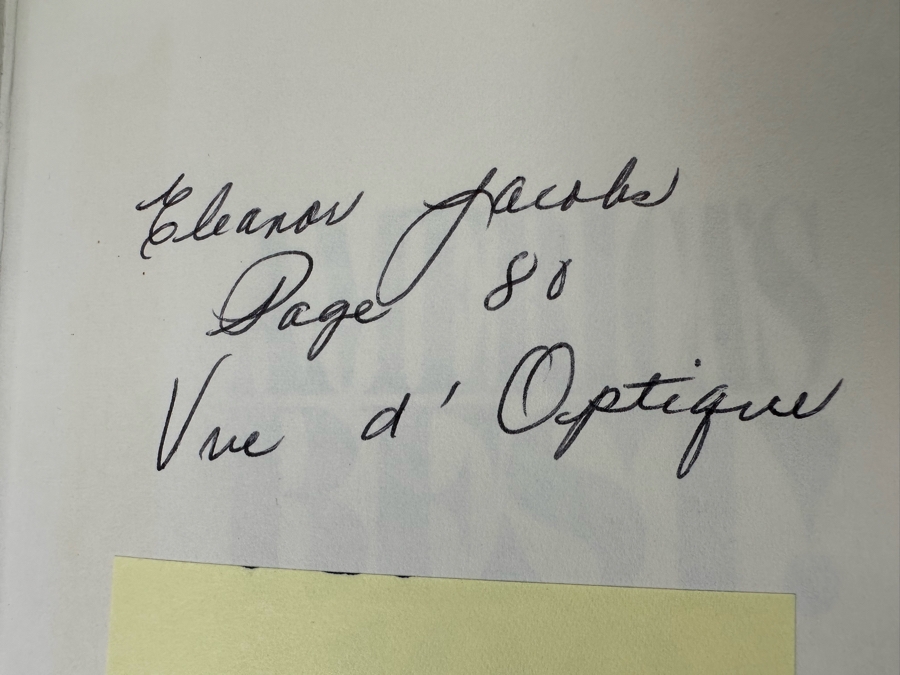 Eleanor Jacobs
Page 80
Vue d' Optique